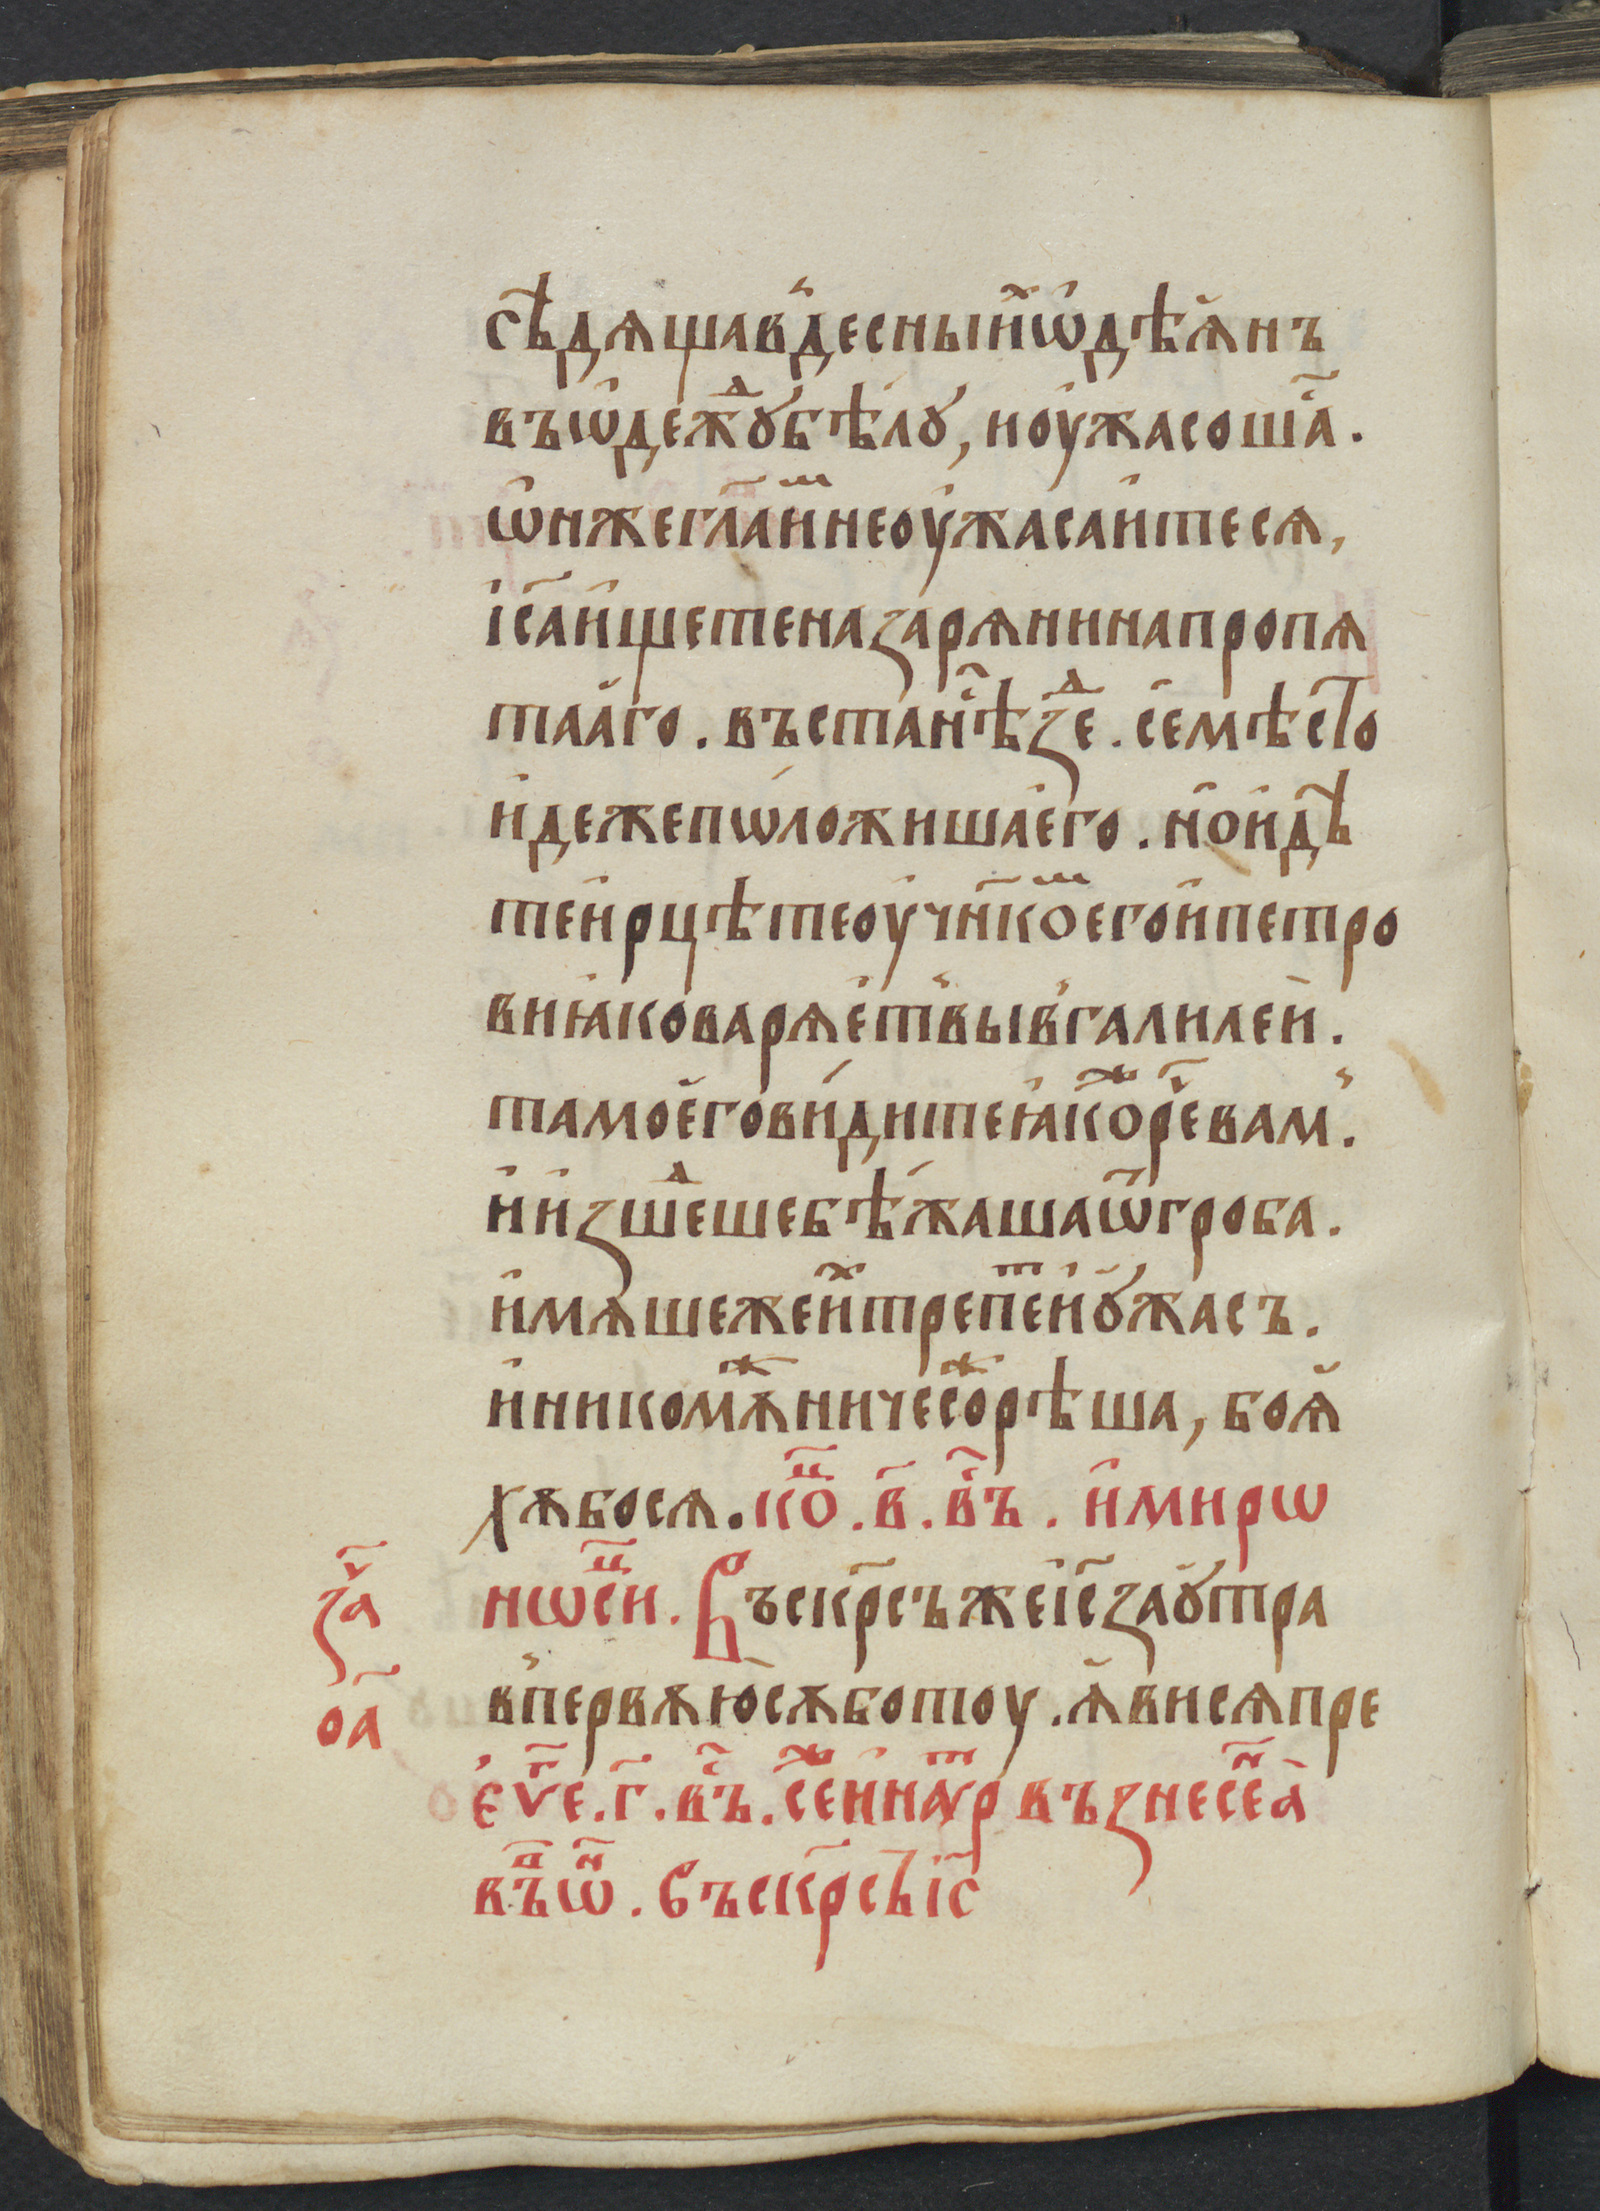 сѣдѧщавдесныⷯиѡдѣѧнъ
въѡдежⷣꙋбѣлꙋ, иоужасошаⷭ҇.
ѡнжеглаⷲ҃ инеоужасаитесѧ,
іс҃аищетеназарѧнинапропѧ
тааго. въстаⷭ҇нѣзⷣе. семѣсто
идежепѡложишаего. ноидѣ
теирцѣтеоучн҃кⷨоегоипетро
виꙗковарѧетвывгалилеи.
тамоеговидитеꙗкⷤореⷱ҇вам.
иизшⷣешебѣжашаѿгроба.
имѧшежеиⷯтрепⷮеиꙋжасъ.
иникомⷤѫничесⷤорѣша, боѧ
хѫбосѧ. коⷰ҇. в҃. въⷭ҇. имирѡ
нѡсⷰ҇и. Въскр҃съжеіс҃заꙋтра
впервѫюсѫботоу. ѧвисѧпре
еѵⷢ҇е. г҃. въⷭ҇. сⷤеинаⷮѵр възнесеⷩ҇а
въⷫ҇ѡⷩ҇. Въскр҃сѣіс҃
заⷱ҇
оа҃